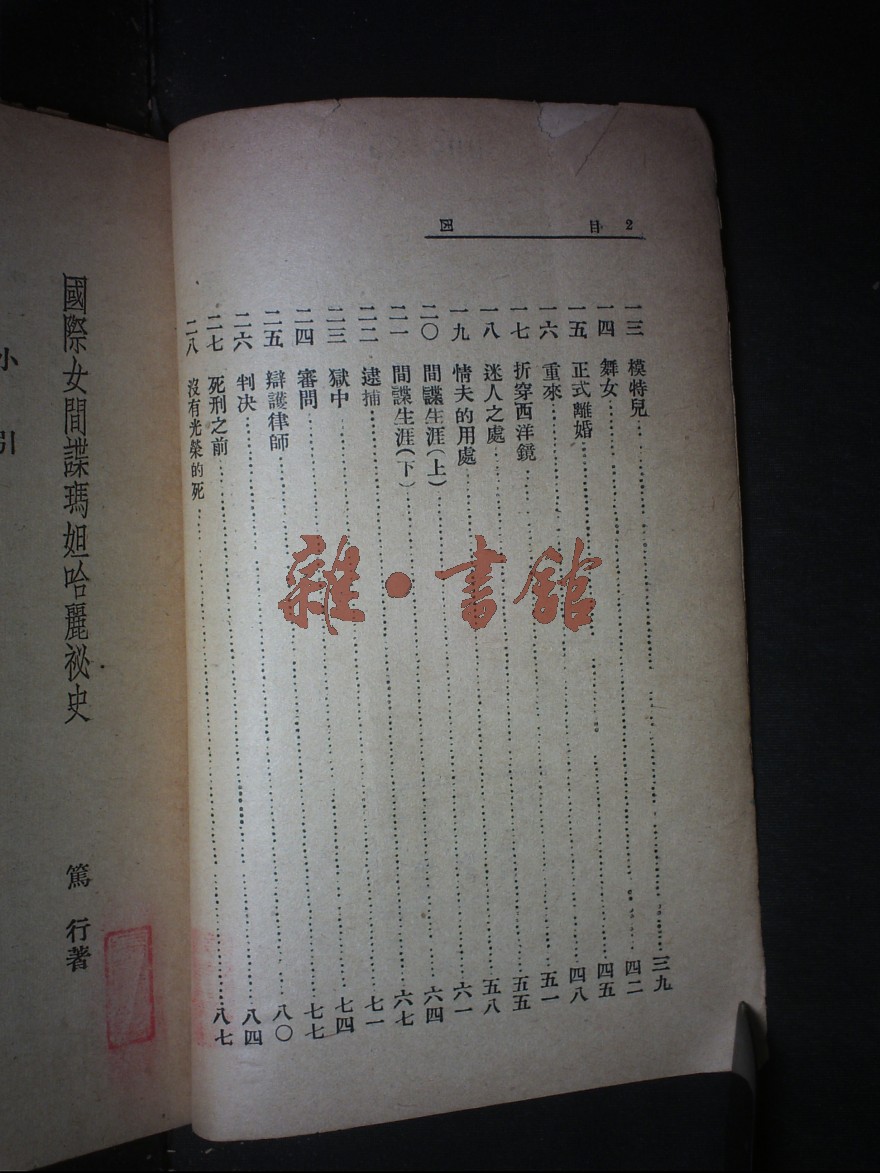 2 目 囬
一三 模特兒 三九
一四 舞女 四二
一五 正式離婚 四五
一六 重來 四八
一七 折穿西洋鏡 五一
一八 迷人之處 五五
一九 情夫的用處 五八
二〇 間諜生涯(上) 六一
二一 間諜生涯(下) 六四
二二 逮捕 六七
二三 獄中 七一
二四 審問 七四
二五 辯護律師 七七
二六 判決 八〇
二七 死刑之前 八四
二八 沒有光榮的死 八七
國際女間諜瑪妲哈麗祕史 篤行著
小引
雜·書館